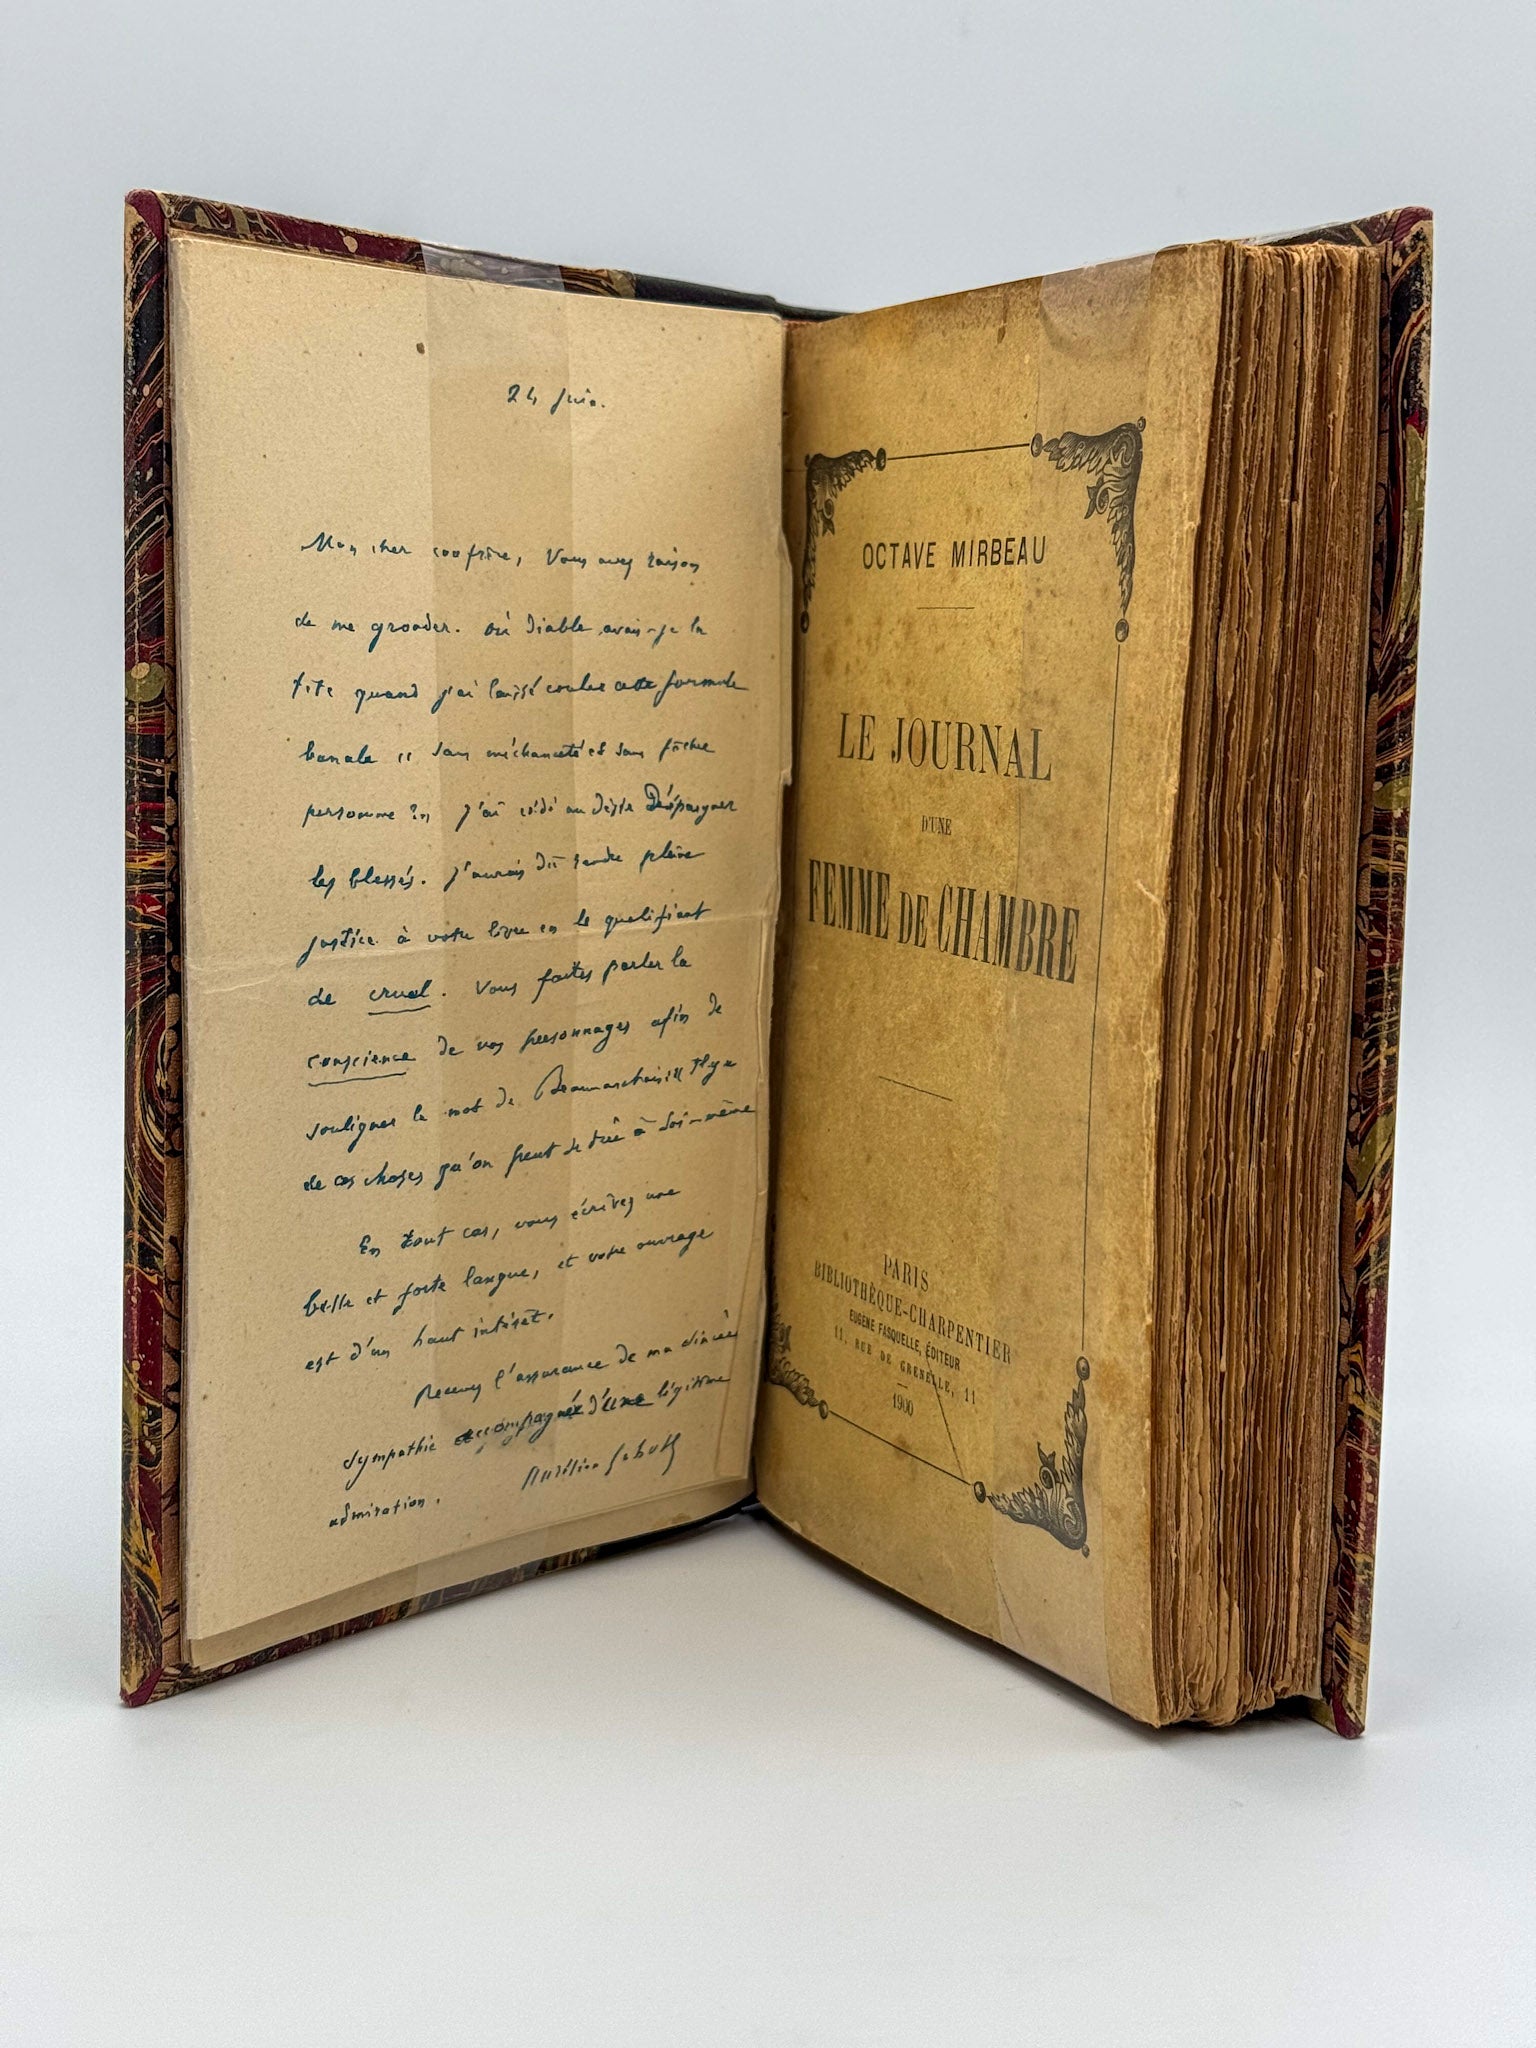 24 Juin.
Mon cher confrère, Vous avez raison
de me gronder. Où diable avais-je la
tête quand j'ai laissé couler cette formule
banale " sans méchanceté et sans fâcher
personne ?" J'ai cédé au désir D'épargner
les blessés. J'aurais dû rendre pleine
justice à votre livre en le qualifiant
de cruel. Vous faites parler la
conscience de vos personnages afin de
souligner le mot de Beaumarchais : Il y a
de ces choses qu'on peut se dire à soi-même
En tout cas, vous écrivez une
belle et forte langue, et votre ouvrage
est d'un haut intérêt.
Recevez l'assurance de ma sincère
sympathie accompagnée d'une légitime
admiration.
Aurélien Scholl
OCTAVE MIRBEAU
LE JOURNAL
D'UNE
FEMME DE CHAMBRE
PARIS
BIBLIOTHÈQUE-CHARPENTIER
EUGÈNE FASQUELLE, ÉDITEUR
11, RUE DE GRENELLE, 11
1900